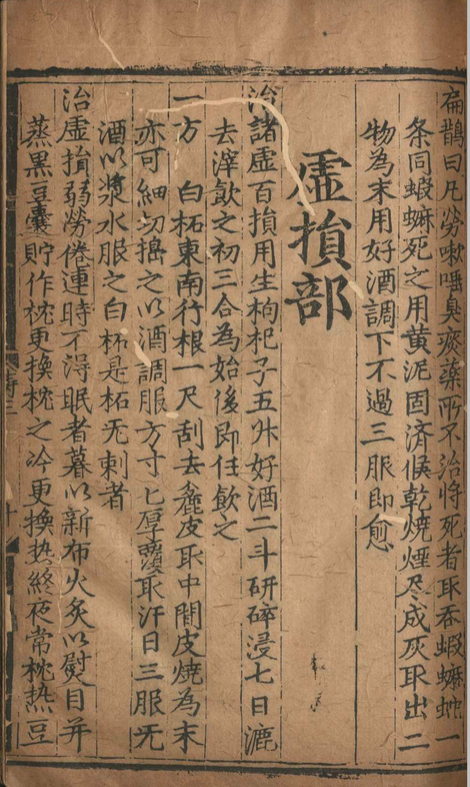 扁鵲曰凡勞嗽嗌臭瘀藥所不治將死者取吞蝦蟆蛇一
条同蝦蟆死之用黄泥固済候乾燒煙尽成灰取出二
物為末用好酒調下不過三服即愈
虛損部
治諸虛百損用生枸杞子五升好酒二斗研碎浸七日漉
去滓飲之初三合為始後即任飲之
一方 白柘東南行根一尺刮去麁皮取中間皮燒為末
亦可細切擣之以酒調服方寸匕厚覆取汗日三服无
酒以漿水服之白柘是柘无刺者
治虛損弱勞倦連時不淂眠者暮以新布火炙以熨目并
蒸黑豆囊貯作枕更換枕之冷更換热終夜常枕热豆